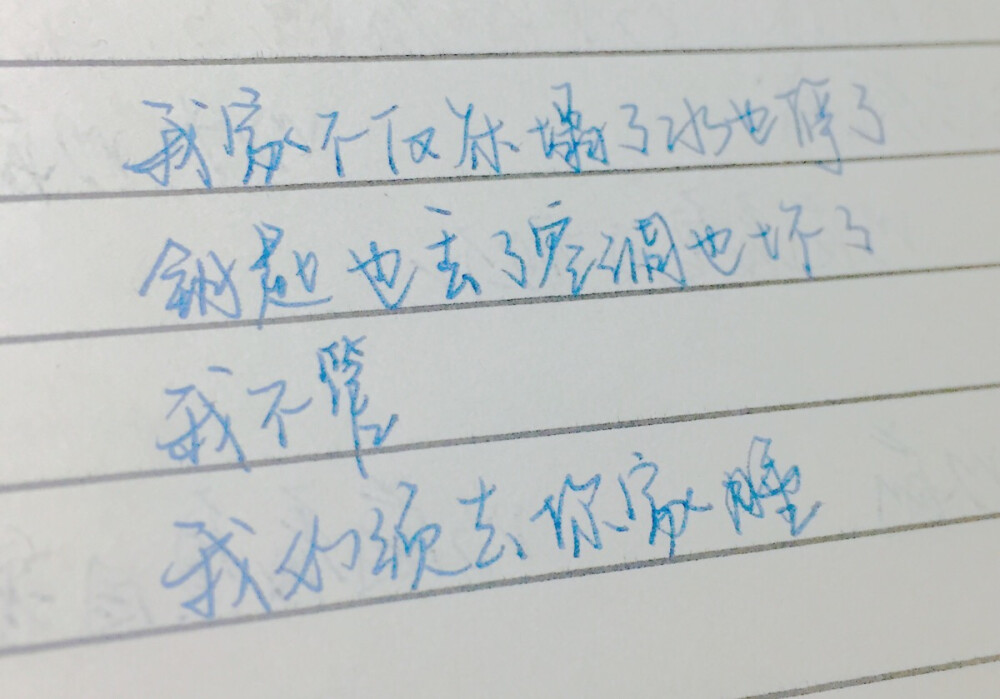 我家不仅床塌了水也停了
钥匙也丢了空调也坏了
我不管
我必须去你家睡